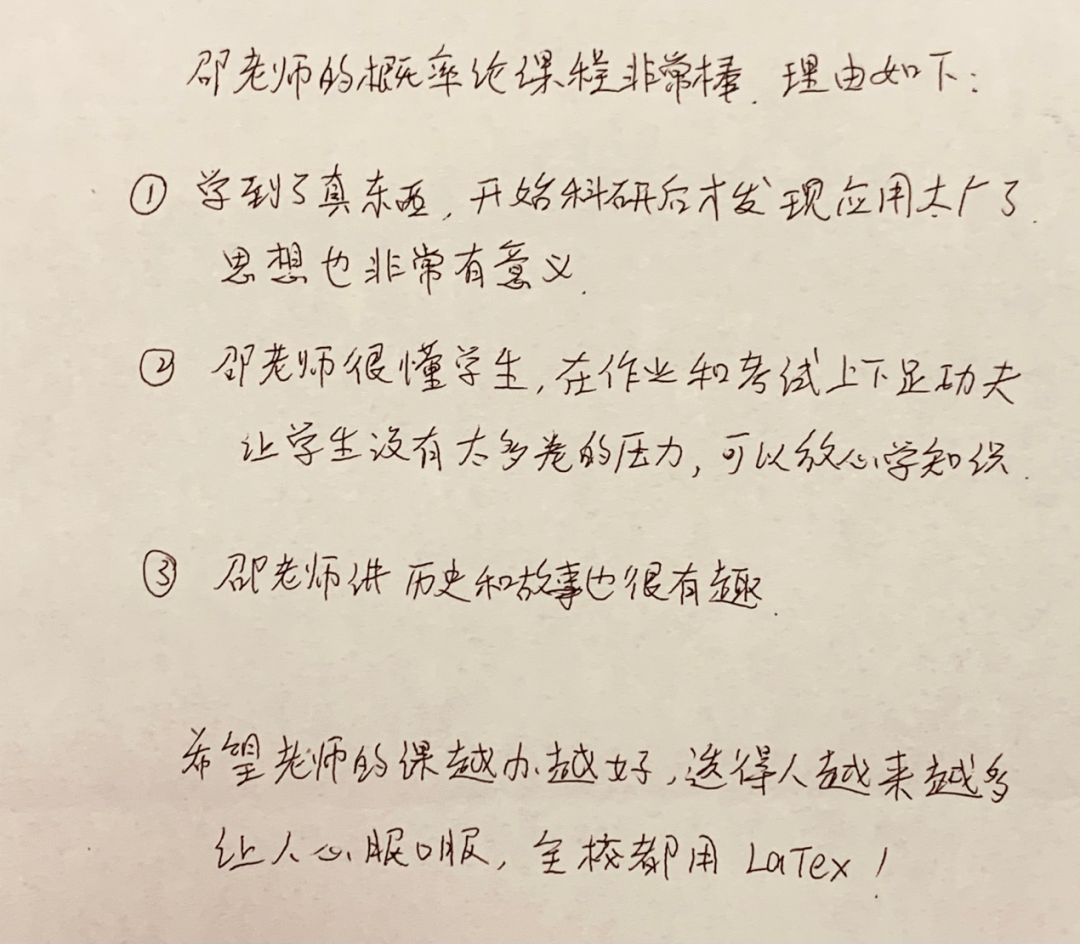 邵老师的概率论课程非常棒. 理由如下:
① 学到了真东西, 开始科研后才发现应用太广了.
思想也非常有意义.
② 邵老师很懂学生, 在作业和考试上下足功夫
让学生没有太多卷的压力, 可以放心学知识.
③ 邵老师讲历史和故事也很有趣.
希望老师的课越办越好, 选得人越来越多
让人心服口服, 全校都用 LaTex!